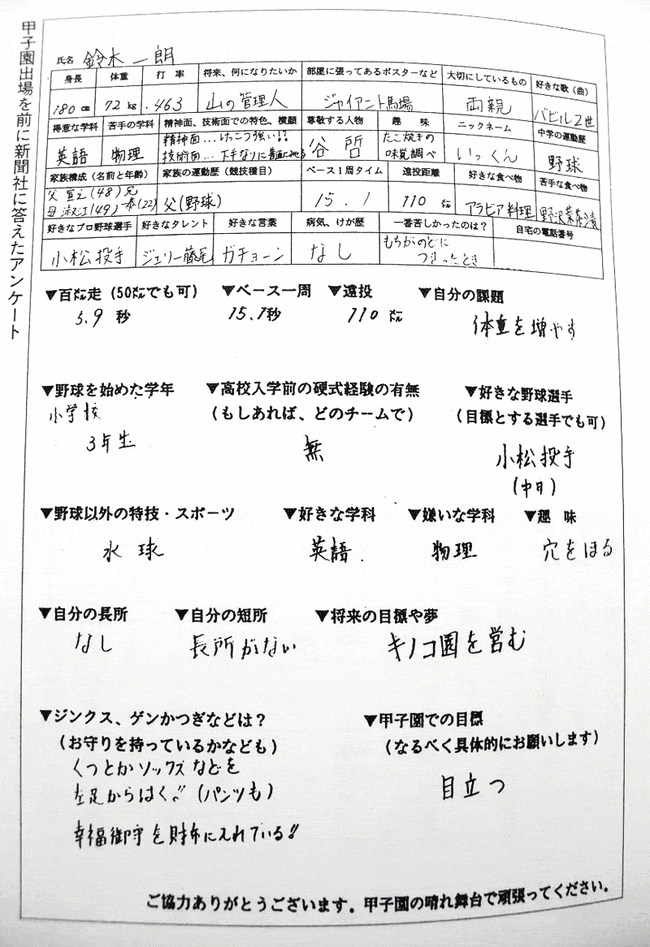 甲子園出場を前に新聞社に答えたアンケート
氏名 鈴木一朗
身長 体重 打率 将来、何になりたいか 部屋に張ってあるポスターなど 大切にしているもの 好きな歌（曲）
180cm 72kg .463 山の管理人 ジャイアント馬場 両親 バビル2世
得意な学科 苦手の学科 精神面、技術面での特色、横顔 尊敬する人物 趣味 ニックネーム 中学の運動歴
英語 物理 精神面…けっこう強い!! 谷 たこ焼きの いっくん 野球
技術面…下手なりに 味覚調べ
家族構成（名前と年齢） 家族の運動歴（競技種目） ベース1周タイム 遠投距離 好きな食べ物 苦手な食べ物
父 宣之(48) 兄 父(野球) 15.1 110 アラビア料理 野沢菜茶漬
母 淑江(49) (22)
好きなプロ野球選手 好きなタレント 好きな言葉 病気、けが歴 一番苦しかったのは？ 自宅の電話番号
小松投手 ジェリー藤尾 ガチョーン なし もちがのどに
つまったとき
▼百㍍走（50㍍でも可） ▼ベース一周 ▼遠投 ▼自分の課題
5.9秒 15.1秒 110㍍ 体重を増やす
▼野球を始めた学年 ▼高校入学前の硬式経験の有無 ▼好きな野球選手
小学校 （もしあれば、どのチームで） （目標とする選手でも可）
3年生 無 小松投手
(中日)
▼野球以外の特技・スポーツ ▼好きな学科 ▼嫌いな学科 ▼趣味
水球 英語. 物理 穴をほる
▼自分の長所 ▼自分の短所 ▼将来の目標や夢
なし 長所がない キノコ園を営む
▼ジンクス、ゲンかつぎなどは？ ▼甲子園での目標
（お守りを持っているかなども） （なるべく具体的にお願いします）
くつとかソックスなどを
左足からはく!! (パンツも) 目立つ
幸福御守を財布に入れている!!
ご協力ありがとうございます。甲子園の晴れ舞台で頑張ってください。